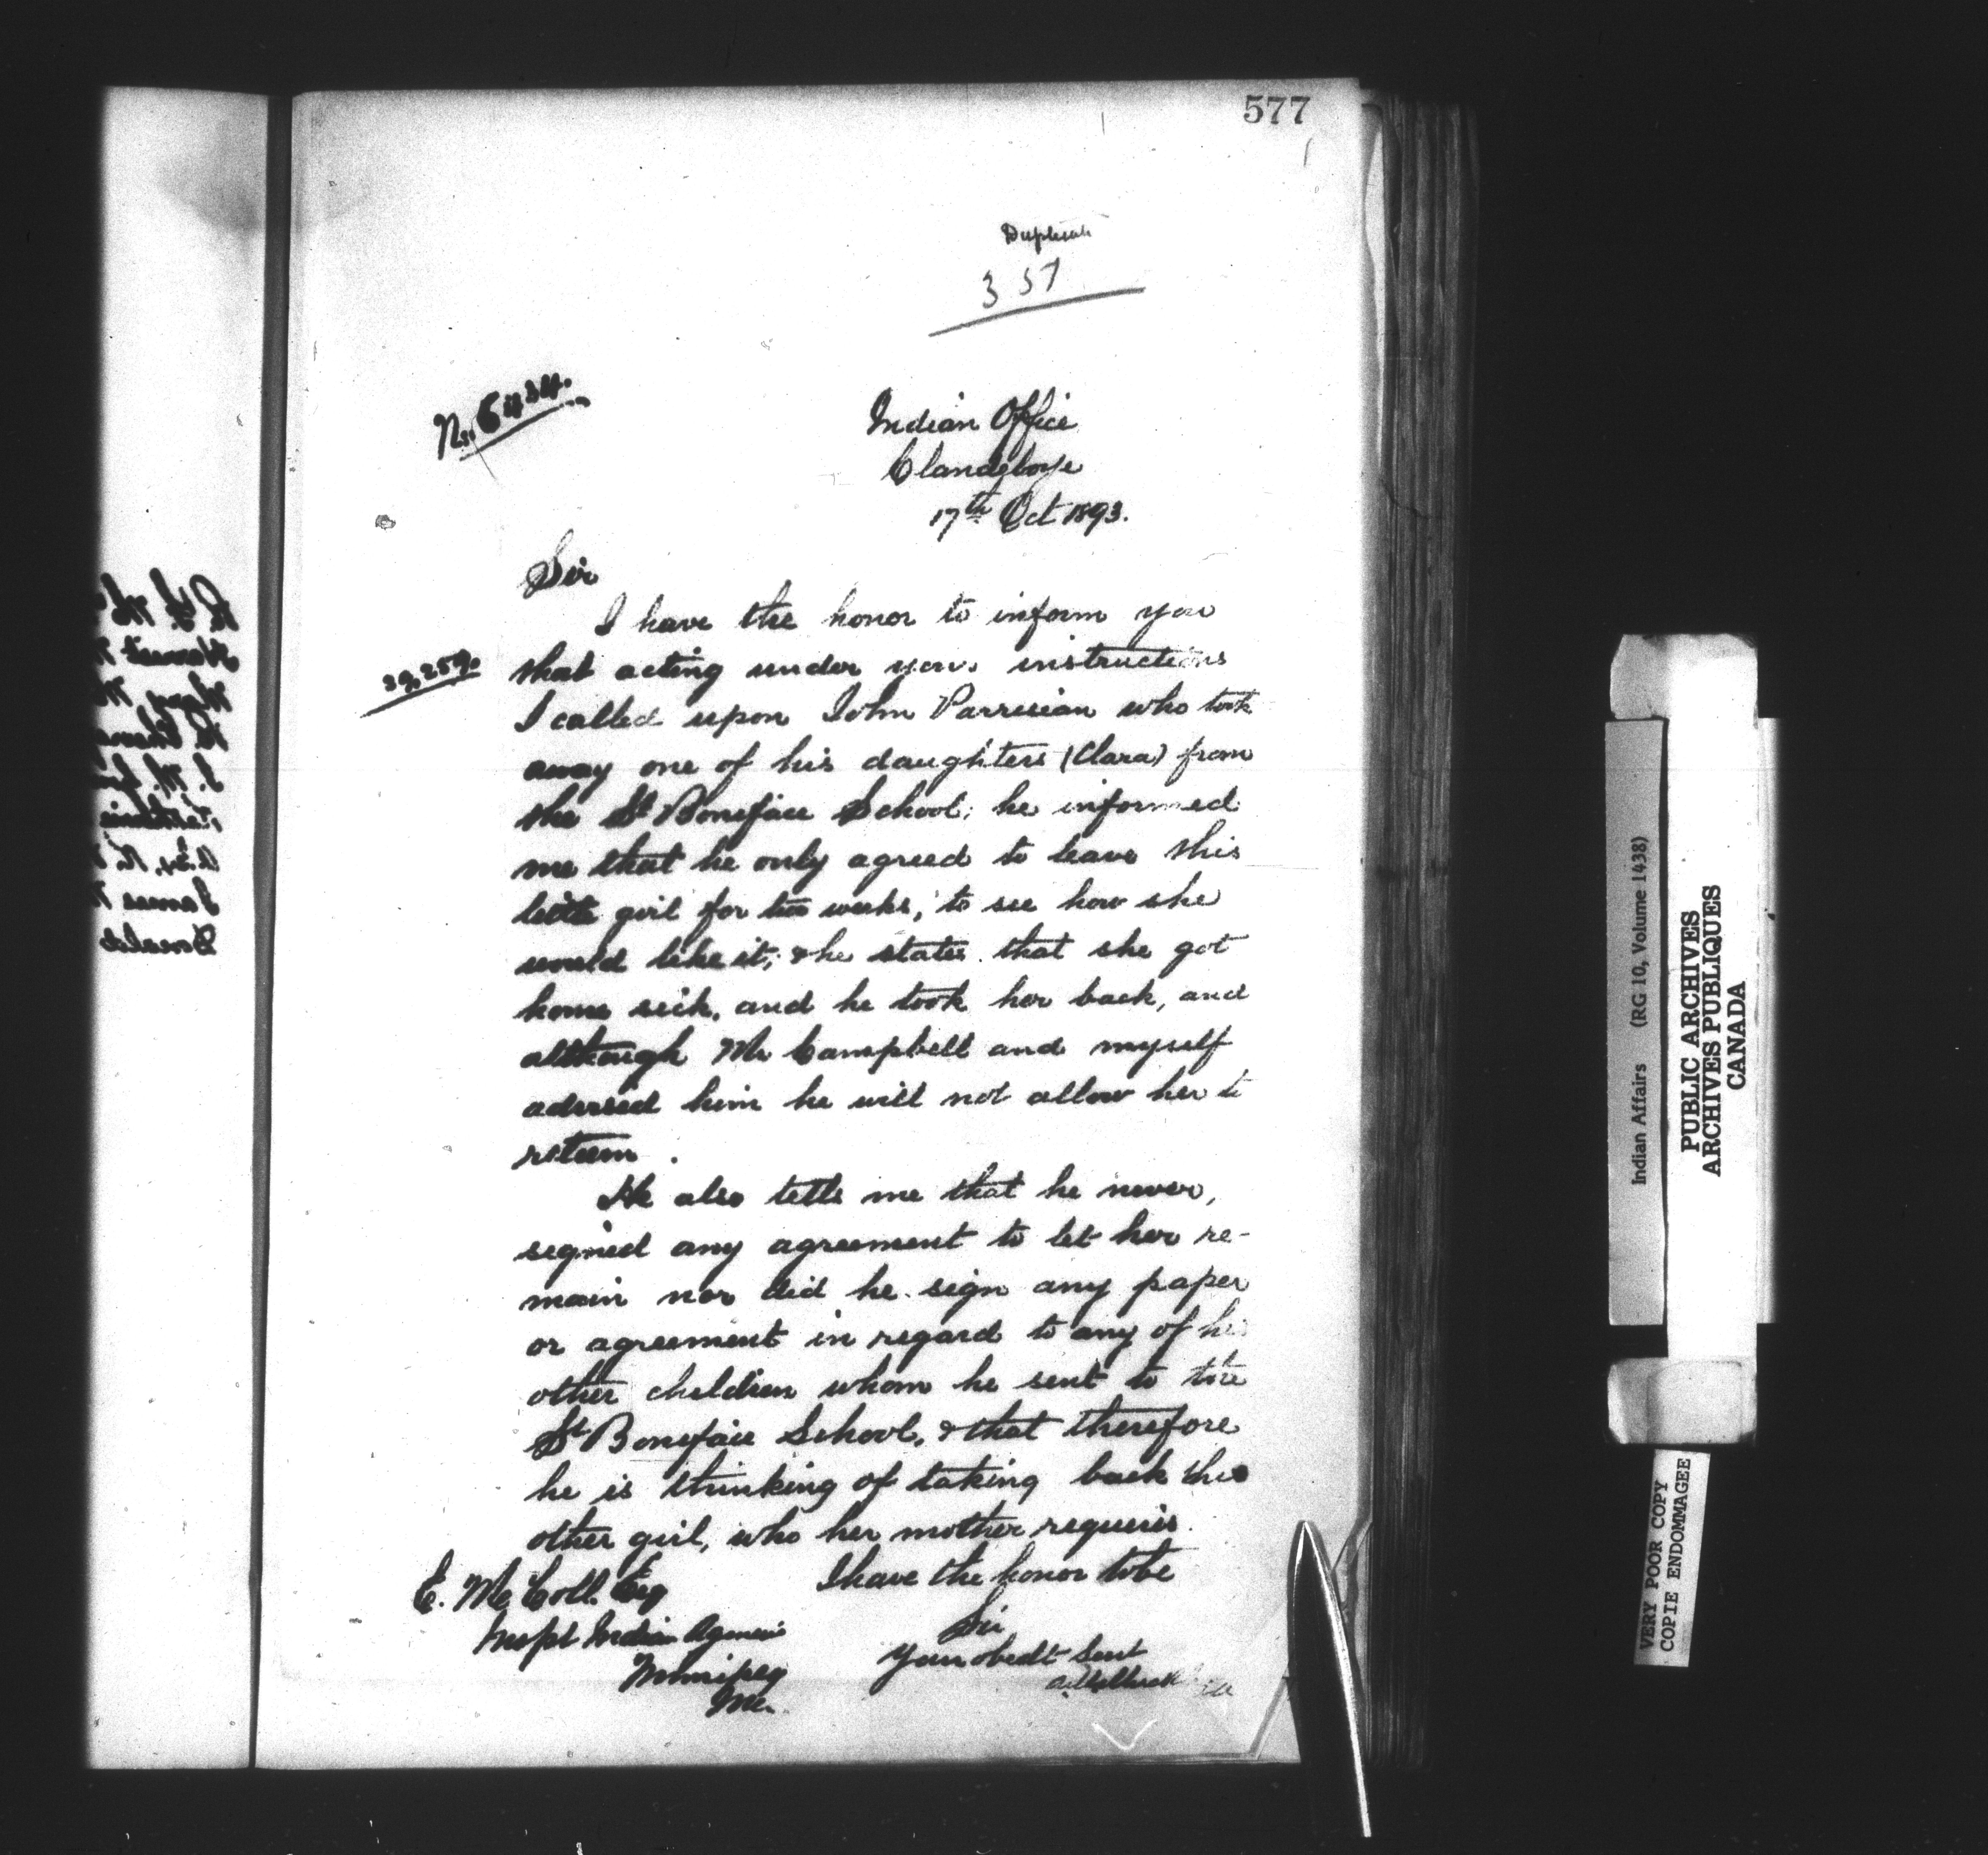 577
Duplicate
357
No. 6434.
Indian Office
Clandeboye
17th Oct 1893.
Sir
I have the honor to inform you
39,259.
that acting under your instructions
I called upon John Parrisian who took
away one of his daughters (Clara) from
the St Boniface School; he informed
me that he only agreed to leave this
little girl for two weeks, to see how she
would like it; & he states that she got
home sick, and he took her back, and
although Mr Campbell and myself
advised him he will not allow her to
return.
He also tells me that he never,
signed any agreement to let her re-
main nor did he sign any paper
or agreement in regard to any of his
other children whom he sent to the
St Boniface School, & that therefore
he is thinking of taking back the
other girl, who her mother requires.
I have the honor to be
Sir
Your obedt Servt
E. McColl Esq
Inspt Indian Agencies
Winnipeg
Mn.
Indian Affairs (RG 10, Volume 1438)
PUBLIC ARCHIVES
ARCHIVES PUBLIQUES
CANADA
VERY POOR COPY
COPIE ENDOMMAGEE